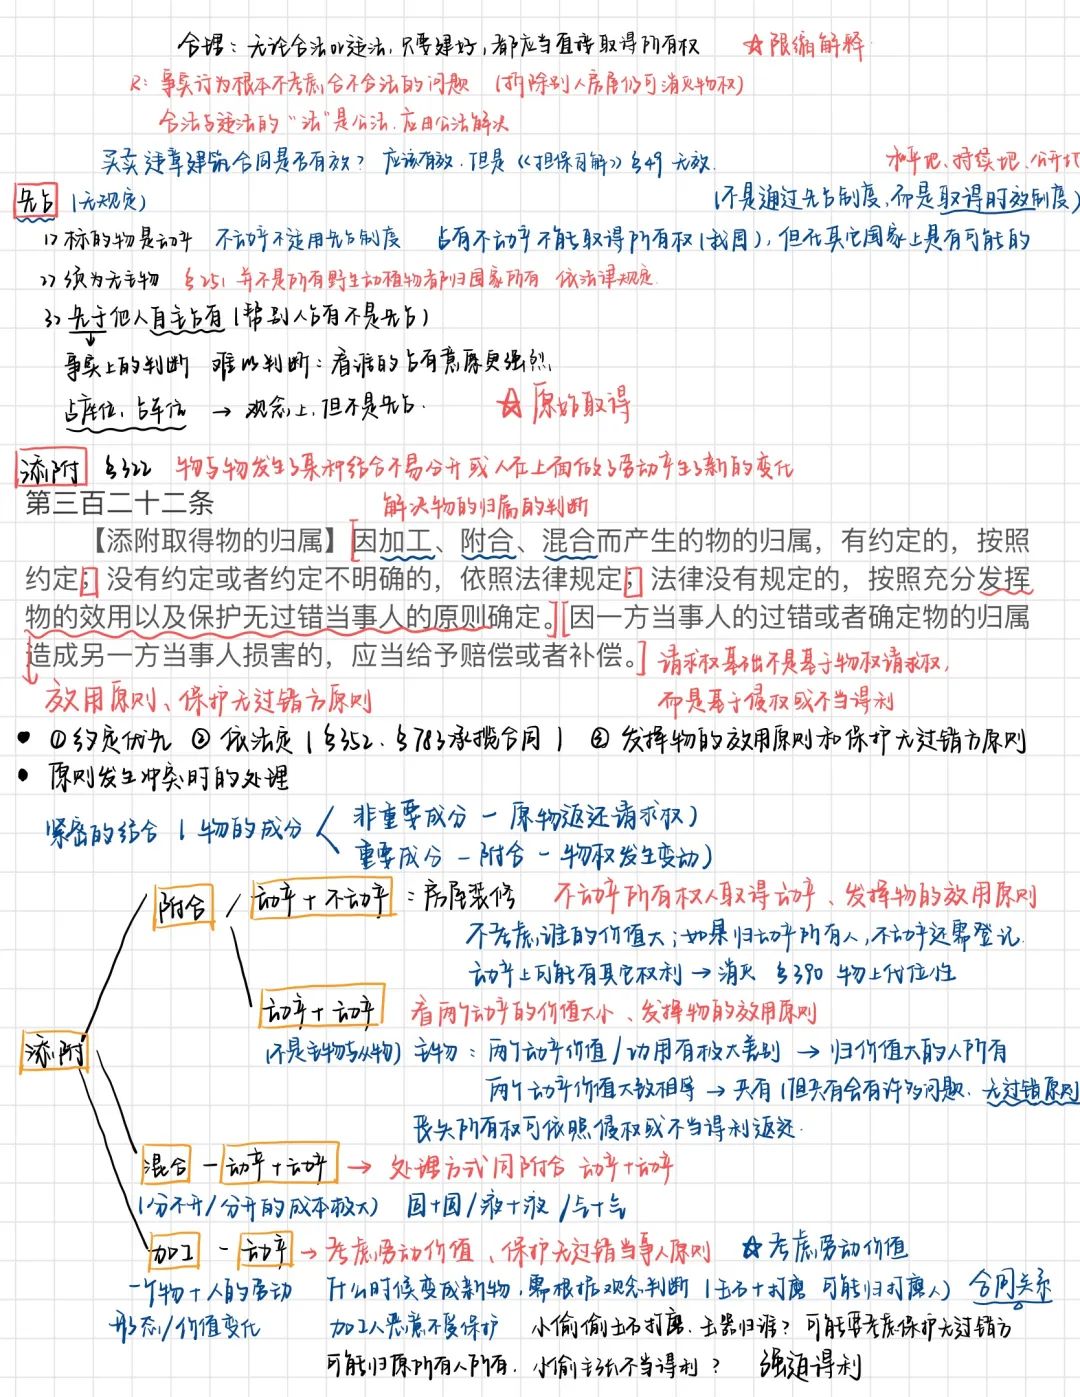 合理：无论合法or违法，只要建好，都应当直接取得所有权 ☆限缩解释
R：事实行为根本不考虑合不合法的问题（拆除别人房屋仍可消灭物权）
合法与违法的"法"是公法，应由公法解决
买卖违章建筑合同是否有效？应该有效，但是《担保司解》§49 无效.
和平地、持续地、公开地
先占（无规定）
（不是通过先占制度，而是取得时效制度）
1）标的物是动产 不动产不适用先占制度 占有不动产不能取得所有权（我国），但在其它国家上是有可能的
2）须为无主物 §251 并不是所有野生动植物都归国家所有 依法律规定.
3）先于他人自主占有（帮别人占有不是先占）
↓
事实上的判断 难以判断：看谁的占有意愿更强烈
占座位、占车位 → 观念上，但不是先占. ☆原始取得
添附 §322 物与物发生了某种结合不易分开或人在上面做了劳动产生了新的变化
第三百二十二条 解决物的归属的判断
【添附取得物的归属】[因加工、附合、混合而产生的物的归属，有约定的，按照
约定；没有约定或者约定不明确的，依照法律规定；法律没有规定的，按照充分发挥
物的效用以及保护无过错当事人的原则确定。][因一方当事人的过错或者确定物的归属
造成另一方当事人损害的，应当给予赔偿或者补偿。] 请求权基础不是基于物权请求权，
↓效用原则、保护无过错方原则 而是基于侵权或不当得利
● ①约定优先 ② 依法定（§352、§783承揽合同） ③ 发挥物的效用原则和保护无过错方原则
● 原则发生冲突时的处理
紧密的结合（物的成分 非重要成分－原物返还请求权）
重要成分－附合－物权发生变动）
附合 动产+不动产：房屋装修 不动产所有权人取得动产、发挥物的效用原则
不考虑谁的价值大；如果归动产所有人，不动产还需登记.
动产上可能有其它权利→消灭 §390 物上代位性
动产+动产 看两个动产的价值大小、发挥物的效用原则
添附 （不是主物与从物）主物：两个动产价值/功用有极大差别 → 归价值大的人所有
两个动产价值大致相等 → 共有（但共有会有许多问题. 无过错原则
丧失所有权可依照侵权或不当得利返还.
混合－动产+动产 → 处理方式同附合 动产+动产
（分不开/分开的成本极大） 固+固/液+液/气+气
加工－动产→ 考虑劳动价值、保护无过错当事人原则 ☆考虑劳动价值
一个物+人的劳动 什么时候变成新物，需根据观念判断（玉石+打磨 可能归打磨人） 合同关系
形态/价值变化 加工人恶意不受保护 小偷偷玉石打磨，玉器归谁？可能要考虑保护无过错方
可能归原所有人所有. 小偷主张不当得利？ 强迫得利